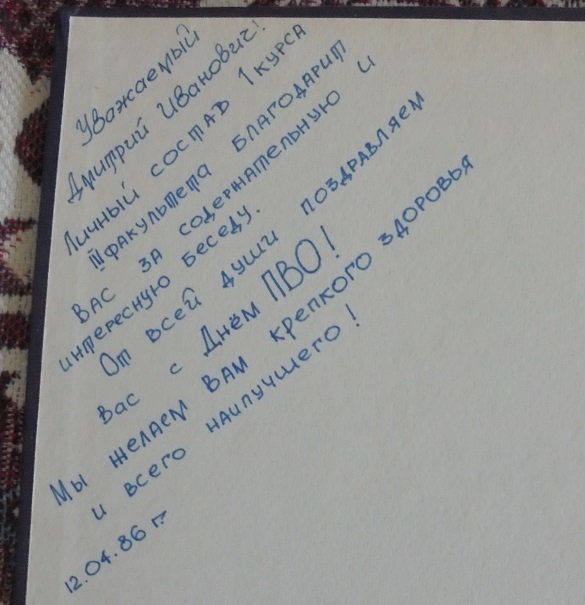 Уважаемый
Дмитрий Иванович!
Личный состав 1 курса
III факультета благодарит
вас за содержательную и
интересную беседу.
От всей души поздравляем
вас с Днём ПВО!
Мы желаем вам крепкого здоровья
и всего наилучшего!
12.04.86 г.